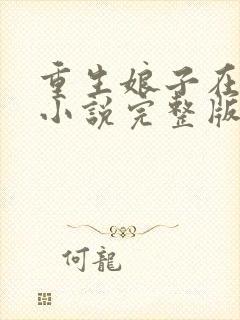 重生娘子在
小説完整版
何龍